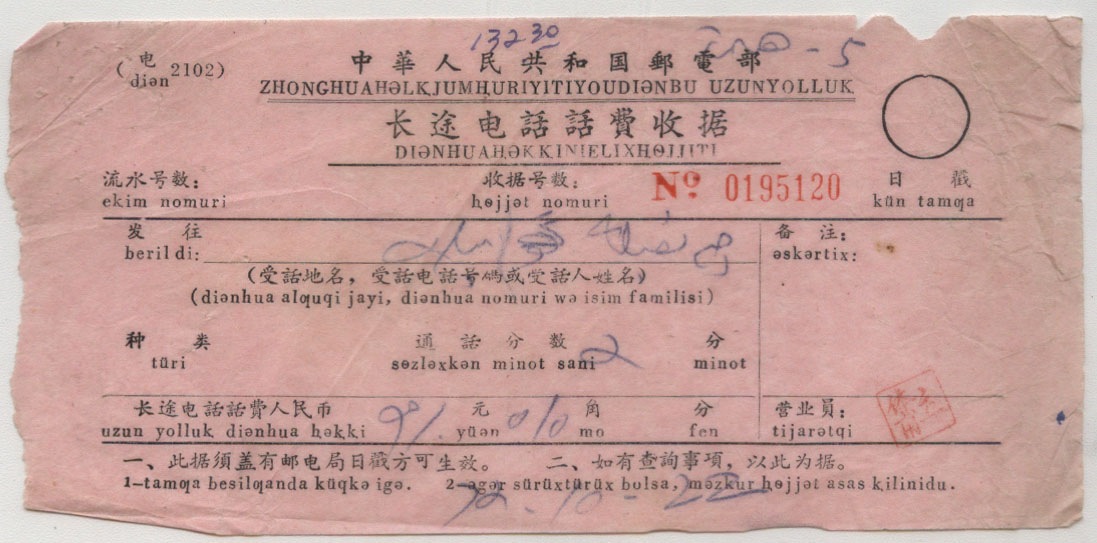 132 30
(电 diən 2102)
中華人民共和国郵電部
ZHONGHUAHƏLKJUMHURIYITIYOUDIƏNBU UZUNYOLLUK
长途电話話費收据
DIƏNHUAHƏKKINIELIXHɵJJITI
流水号数： 收据号数： № 0195120 日 戳
ekim nomuri hɵjjət nomuri kün tamƣa
发 往 备 注：
berildi: əskərtix:
(受話地名，受話电話号碼或受話人姓名)
(diənhua alƣuqi jayi, diənhua nomuri wə isim familisi)
种 类 通話分数 2 分
türi sɵzləxkən minot sani minot
长途电話話費人民币 元 角 分 营业員：
uzun yolluk diənhua həkki yüən mo fen tijarətqi
一、此据须盖有邮电局日戳方可生效。 二、如有查詢事項，以此为据。
1-tamƣa besilƣanda küqkə igə. 2-əgər sürüxtürüx bolsa, məzkur hɵjjət asas kilinidu.
72.10-22